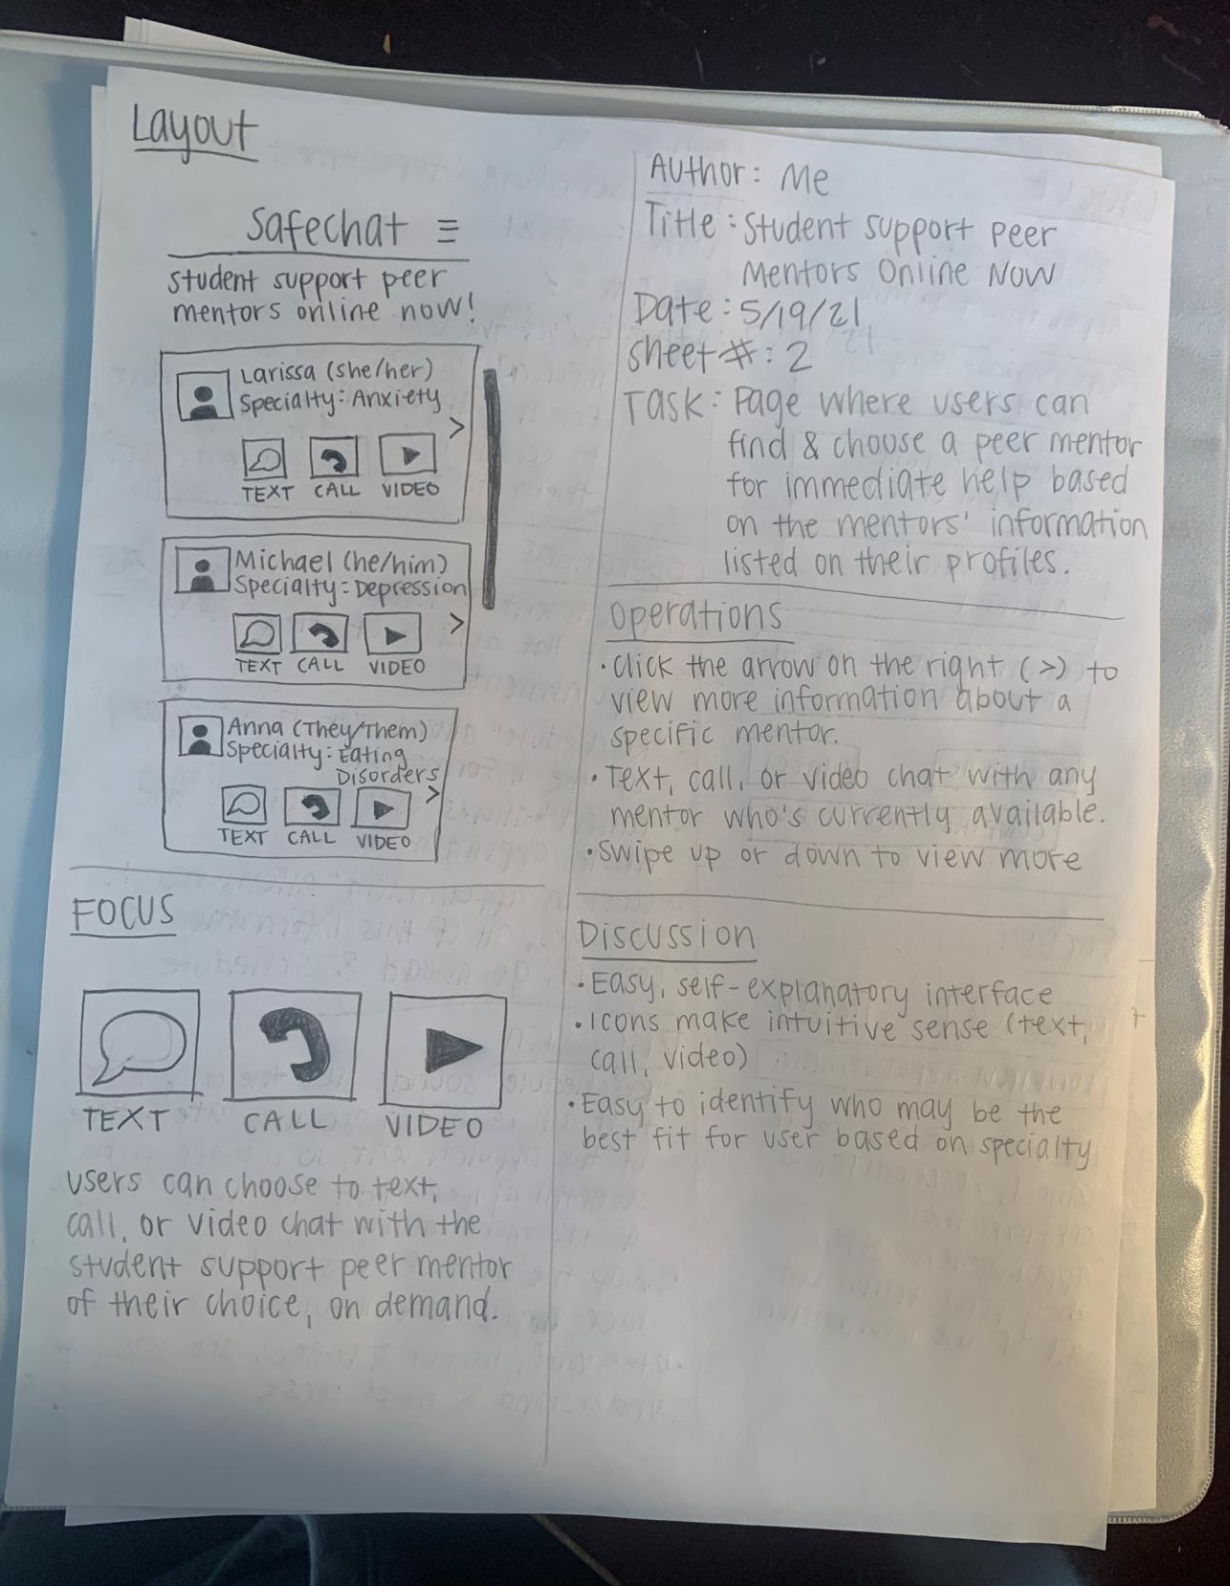 Layout
Safechat
student support peer
mentors online now!
Larissa (she/her)
Specialty: Anxiety
>
TEXT CALL VIDEO
Michael (he/him)
Specialty: Depression
>
TEXT CALL VIDEO
Anna (They/Them)
Specialty: Eating
Disorders
>
TEXT CALL VIDEO
FOCUS
TEXT CALL VIDEO
users can choose to text,
call, or video chat with the
student support peer mentor
of their choice, on demand.
Author: Me
Title: Student support peer
Mentors Online Now
Date: 5/19/21
Sheet #: 2
Task: Page where users can
find & choose a peer mentor
for immediate help based
on the mentors' information
listed on their profiles.
Operations
• Click the arrow on the right (>) to
view more information about a
specific mentor.
• Text, call, or video chat with any
mentor who's currently available.
• Swipe up or down to view more
Discussion
• Easy, self-explanatory interface
• Icons make intuitive sense (text,
call, video)
• Easy to identify who may be the
best fit for user based on specialty